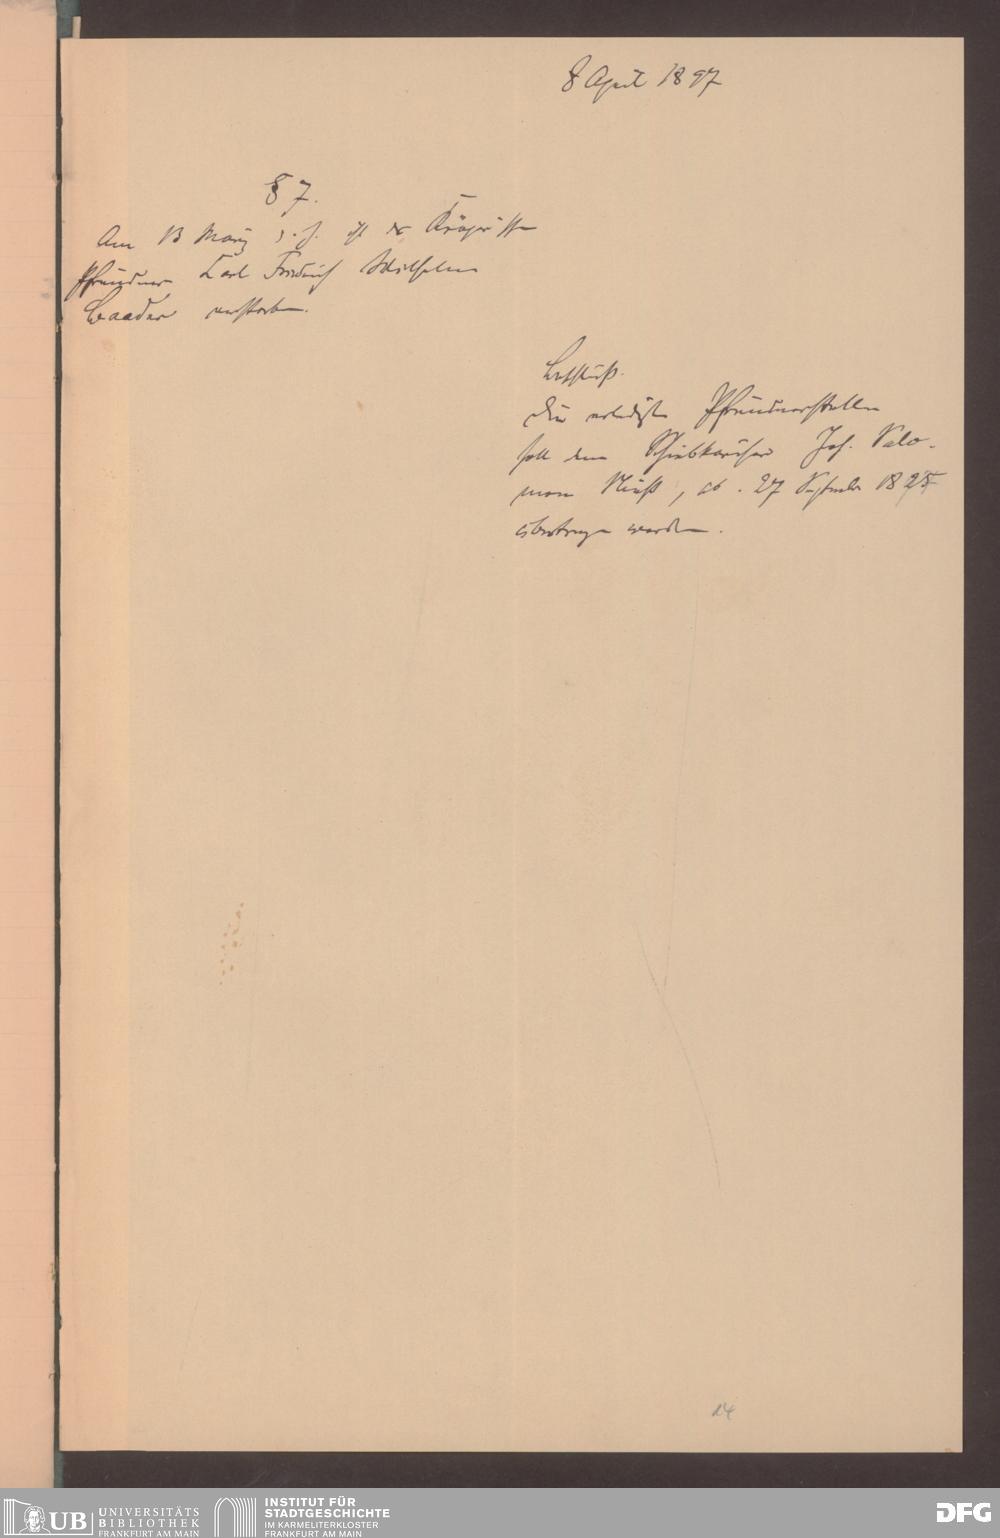 8 April 1897
§ 7.
Am 13 März d. J. ist der
Pfründner Carl Friedrich Wilhelm
Baader verstorben.
Beschluß.
Die erledigte Pfründnerstelle
soll dem Joh. Salo-
mon, gb. 27 September 1825
übertragen werden.
14
UB UNIVERSITÄTS
BIBLIOTHEK
FRANKFURT AM MAIN
INSTITUT FÜR
STADTGESCHICHTE
IM KARMELITERKLOSTER
FRANKFURT AM MAIN
DFG